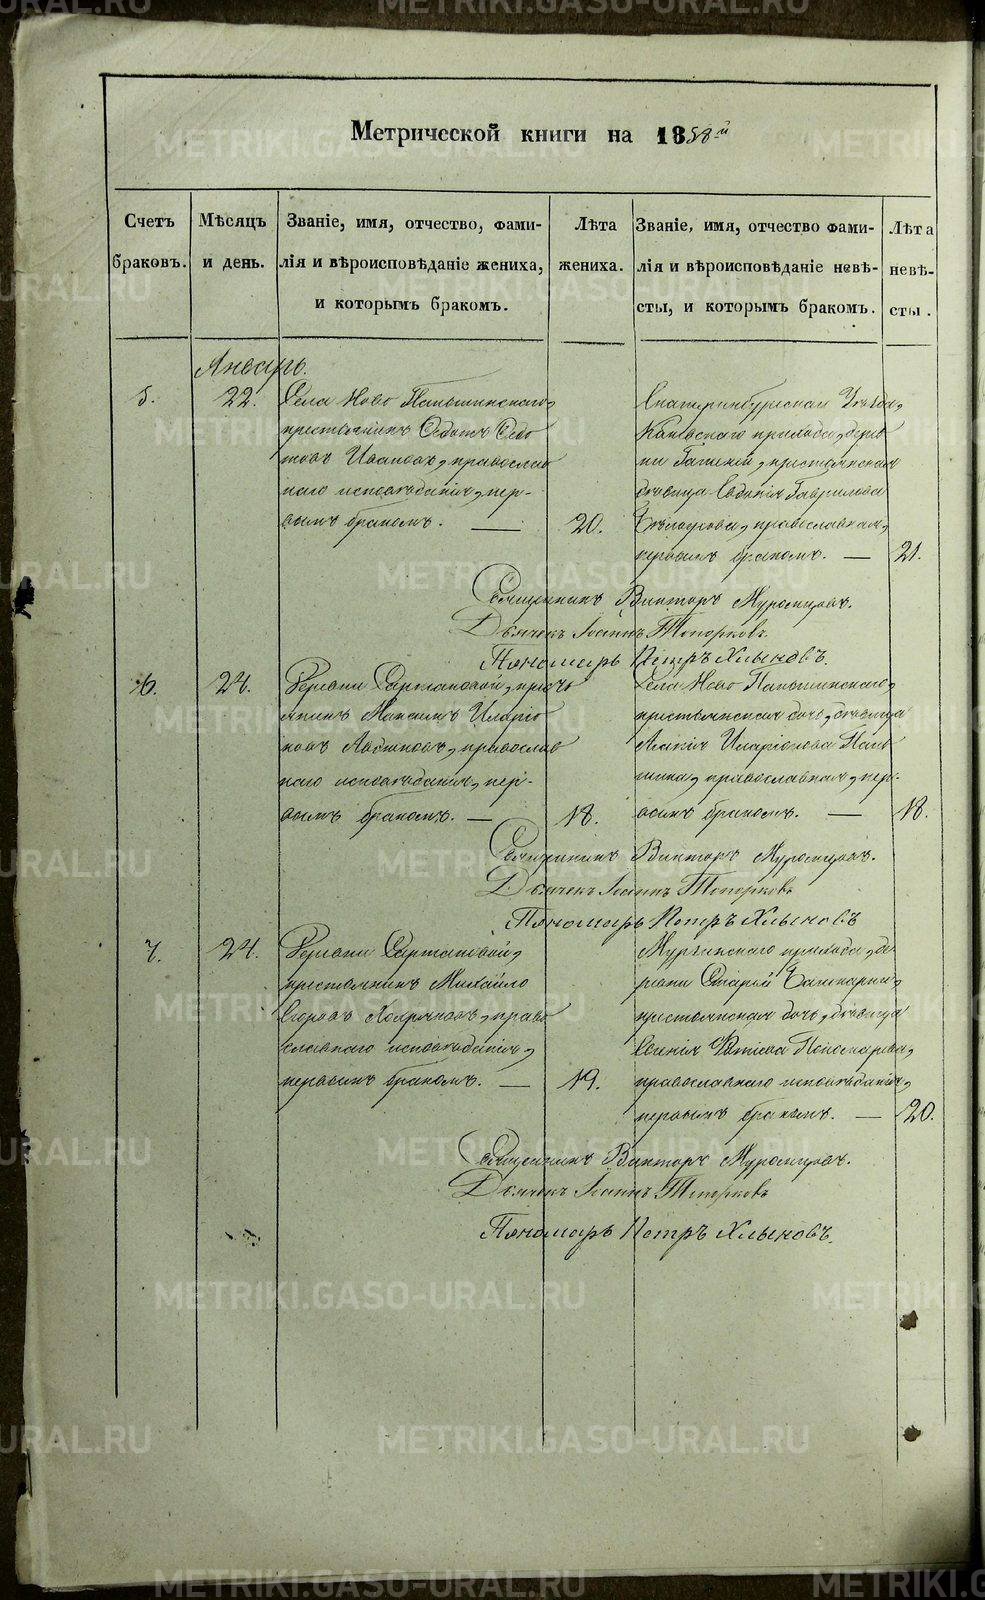 Метрической книги на 1858й
Счетъ браковъ.
Мѣсяцъ и день.
Званіе, имя, отчество, фами-
лія и вѣроисповѣданіе жениха,
и которымъ бракомъ.
Лѣта жениха.
Званіе, имя, отчество фами-
лія и вѣроисповѣданіе невѣ-
сты, и которымъ бракомъ.
Лѣта невѣ-
сты.
Январь.
5.
22.
Села Ново Паньшинскаго,
крестьянинъ Ѳедотъ Ѳедо
товъ Ивановъ, православ
наго исповѣданія, пер-
вымъ бракомъ. —
20.
Екатеринбургскаго Уѣзда,
прихода, дерев
ни крестьянская
дѣвица Евдокія Гаврилова
православная,
первымъ бракомъ. —
21.
Священникъ Викторъ Муромцовъ.
Дьячекъ Іоаннъ Топорковъ
Пономарь Петръ Хлыновъ.
6.
24.
Деревни кресть
янинъ Максимъ Иларіо
новъ православ
наго исповѣданія, пер-
вымъ бракомъ. —
18.
Села Ново Паньшинскаго,
крестьянская дочь, дѣвица
Иларіонова Пань
шина, православная, пер-
вымъ бракомъ. —
18.
Священникъ Викторъ Муромцовъ.
Дьячекъ Іоаннъ Топорковъ
Пономарь Петръ Хлыновъ
7.
24.
Деревни
крестьянинъ Михайло
Егоровъ право
славнаго исповѣданія,
первымъ бракомъ. —
19.
прихода, де
ревни Старой Башкарки,
крестьянская дочь, дѣвица
Пономарева,
православнаго исповѣданія,
первымъ бракомъ. —
20.
Священникъ Викторъ Муромцовъ.
Дьячекъ Іоаннъ Топорковъ
Пономарь Петръ Хлыновъ.
METRIKI.GASO-URAL.RU